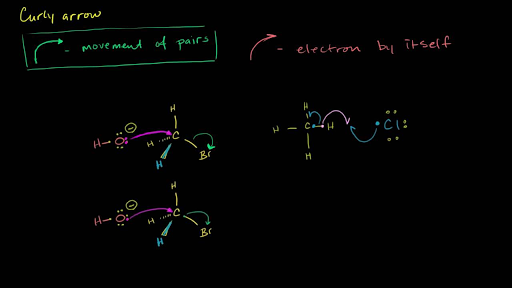 Curly arrow
- movement of pairs
- electron by itself
H
H - O - C
H
H
Br
H
H - C - H Cl
H
H
H - O - C
H
H
Br